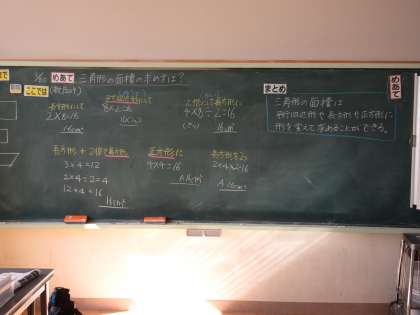 めあて 三角形の面積の求め方は?
ここでは
長方形にして
2×8=16
16cm²
2倍にして長方形に
4×8÷2=16
16cm²
長方形+2倍で長方形
3×4=12
2×4÷2=4
12+4=16
16cm²
正方形に
4×4=16
A 16cm²
長方形2つ
2×4×2=16
A 16cm²
まとめ
三角形の面積は
平行四辺形や長方形や正方形に
形を変えて求めることができる。
めあて